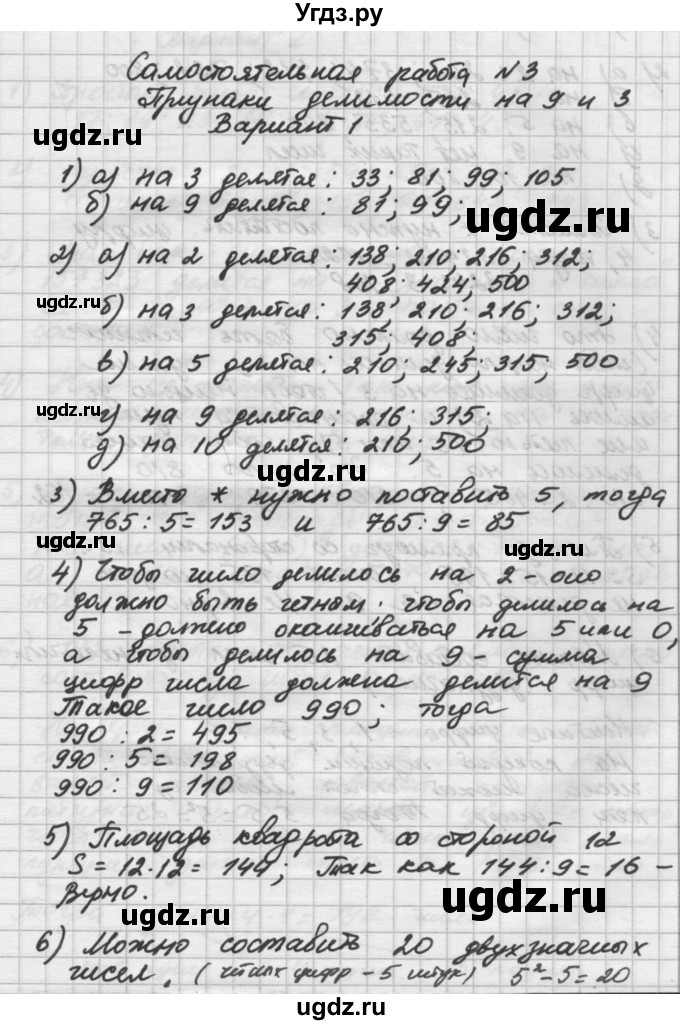 Угдз.ру
Самостоятельная работа №3
Признаки делимости на 9 и 3
Вариант 1
ugdz.ru
1) а) на 3 делятся: 33; 81; 99; 105
б) на 9 делятся: 81; 99;
ugdz.ru
2) а) на 2 делятся: 138; 210; 216; 312;
408; 424; 500
ugdz.ru
б) на 3 делятся: 138; 210; 216; 312;
315; 408;
в) на 5 делятся: 210; 245; 315; 500
ugdz.ru
г) на 9 делятся: 216; 315;
д) на 10 делятся: 210; 500
ugdz.ru
3) Вместо * нужно поставить 5, тогда
765 : 5 = 153 и 765 : 9 = 85
ugdz.ru
ugdz.ru
4) Чтобы число делилось на 2 - оно
должно быть четным. чтобы делилось на
5 - должно оканчиваться на 5 или 0,
а чтобы делилось на 9 - сумма
цифр числа должна делится на 9
Такое число 990; тогда
990 : 2 = 495
990 : 5 = 198
990 : 9 = 110
ugdz.ru
5) Площадь квадрата со стороной 12
S = 12·12 = 144; Так как 144 : 9 = 16 -
Верно.
ugdz.ru
ugdz.ru
6) Можно составить 20 двухзначных
чисел. (цифр - 5 штук) 5²-5=20
ugdz.ru
ugdz.ru